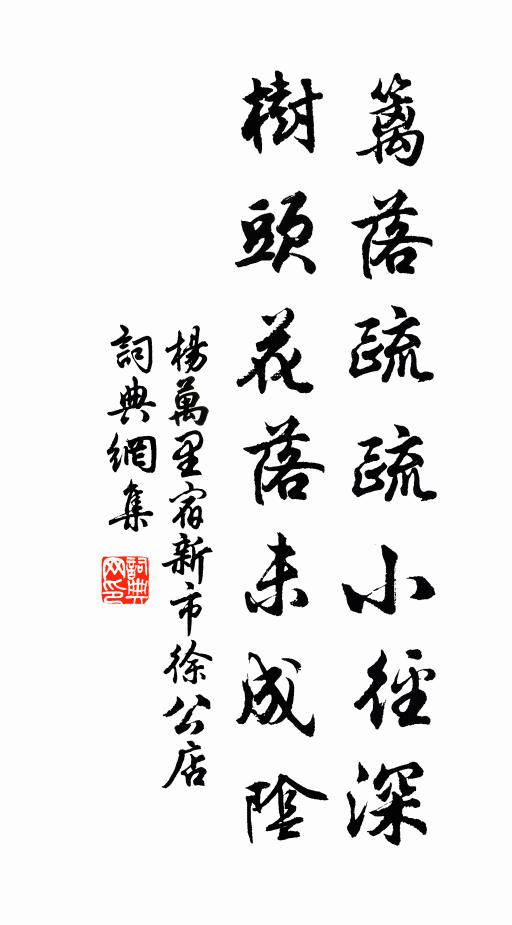 籬落疏疏小徑深
樹頭花落未成陰
楊萬里宿新市徐公店
詞典網集
詞典网印